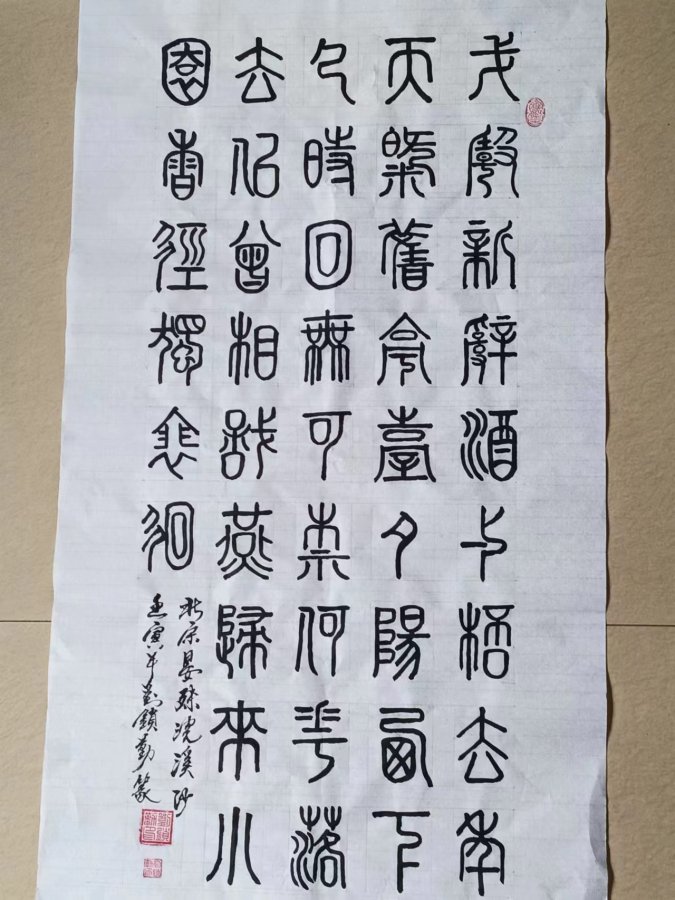 新辭酒桮去年
天氣舊亭臺夕陽西下
几時回無可柰何花落
去佀曾相識燕歸來小
園香徑獨裴徊
北宋晏殊浣溪沙
壬寅年劉鎖勤篆